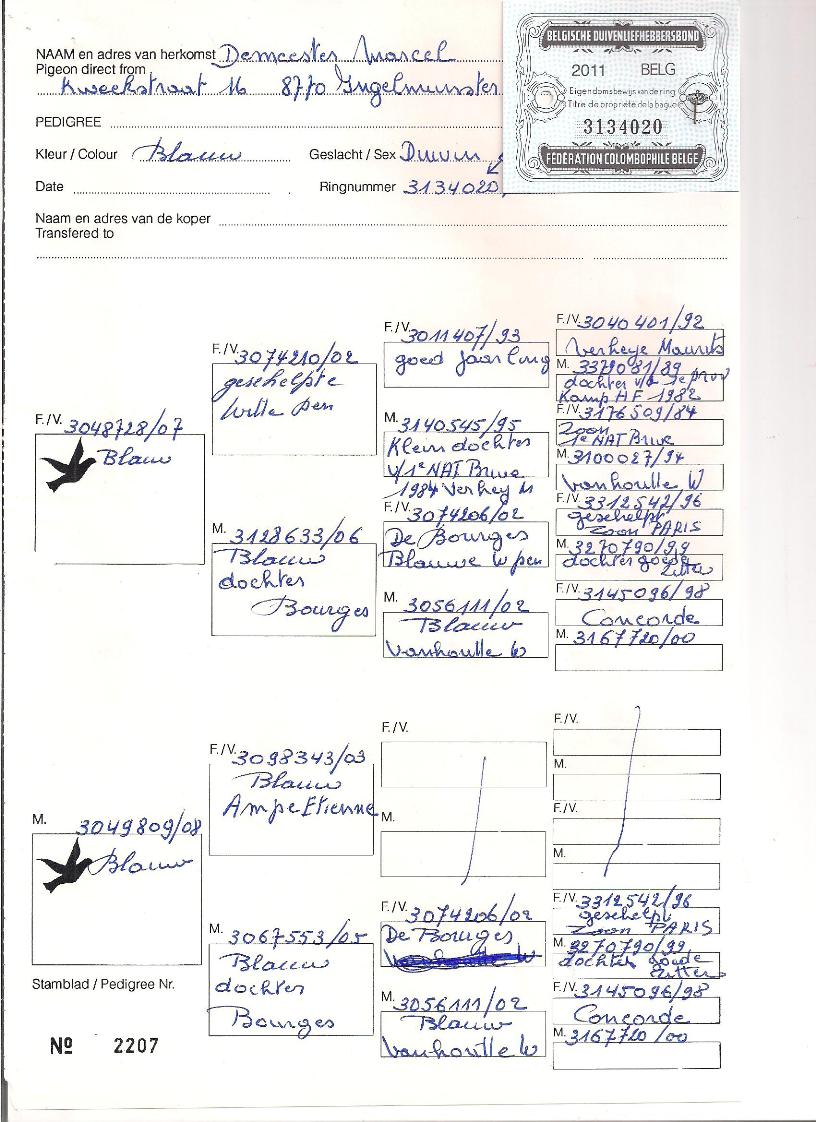 NAAM en adres van herkomst Demeester Marcel
Pigeon direct from
Kweekstraat 16 8770 Ingelmunster
PEDIGREE
Kleur / Colour Blauw Geslacht / Sex Duivin
Date Ringnummer 3134020
Naam en adres van de koper
Transfered to
BELGISCHE DUIVENLIEFHEBBERSBOND
2011 BELG
Eigendomsbewijs van de ring
Titre de propriété de la bague
3134020
FÉDÉRATION COLOMBOPHILE BELGE
F./V. 3048728/07
Blauw
F./V. 3074210/02
geschelpte
witte pen
M. 3128633/06
Blauw
dochter
Bourges
F./V. 3011407/93
goed jaarling
M. 3140545/95
Klein dochter
V/1e NAT Brive
1984 Verhey M
F./V. 3074206/02
De Bourges
Blauwe W pen
M. 3056111/02
Blauw
Vanhoutte W
F./V. 3040401/92
Verheye Maurits
M. 3379081/89
dochter v/d 1e prov
Kamp HF 1982
F./V. 3176509/84
Zoon
1e NAT Brive
M. 3100027/94
Vanhoutte W
F./V. 3312542/96
geschelpt
Zoon PARIS
M. 3270790/99
dochter goede
Zitter
F./V. 3145096/98
Concorde
M. 3167720/00
M. 3049809/08
Blauw
F./V. 3098343/03
Blauw
Ampe Etienne
M. 3067553/05
Blauw
dochter
Bourges
F./V.
M.
F./V. 3074206/02
De Bourges
M. 3056111/02
Blauw
Vanhoutte W
F./V.
M.
F./V.
M.
F./V. 3312542/96
geschelpt
Zoon PARIS
M. 3270790/99
dochter Goede
Zitter
F./V. 3145096/98
Concorde
M. 3167720/00
Stamblad / Pedigree Nr.
Nº 2207